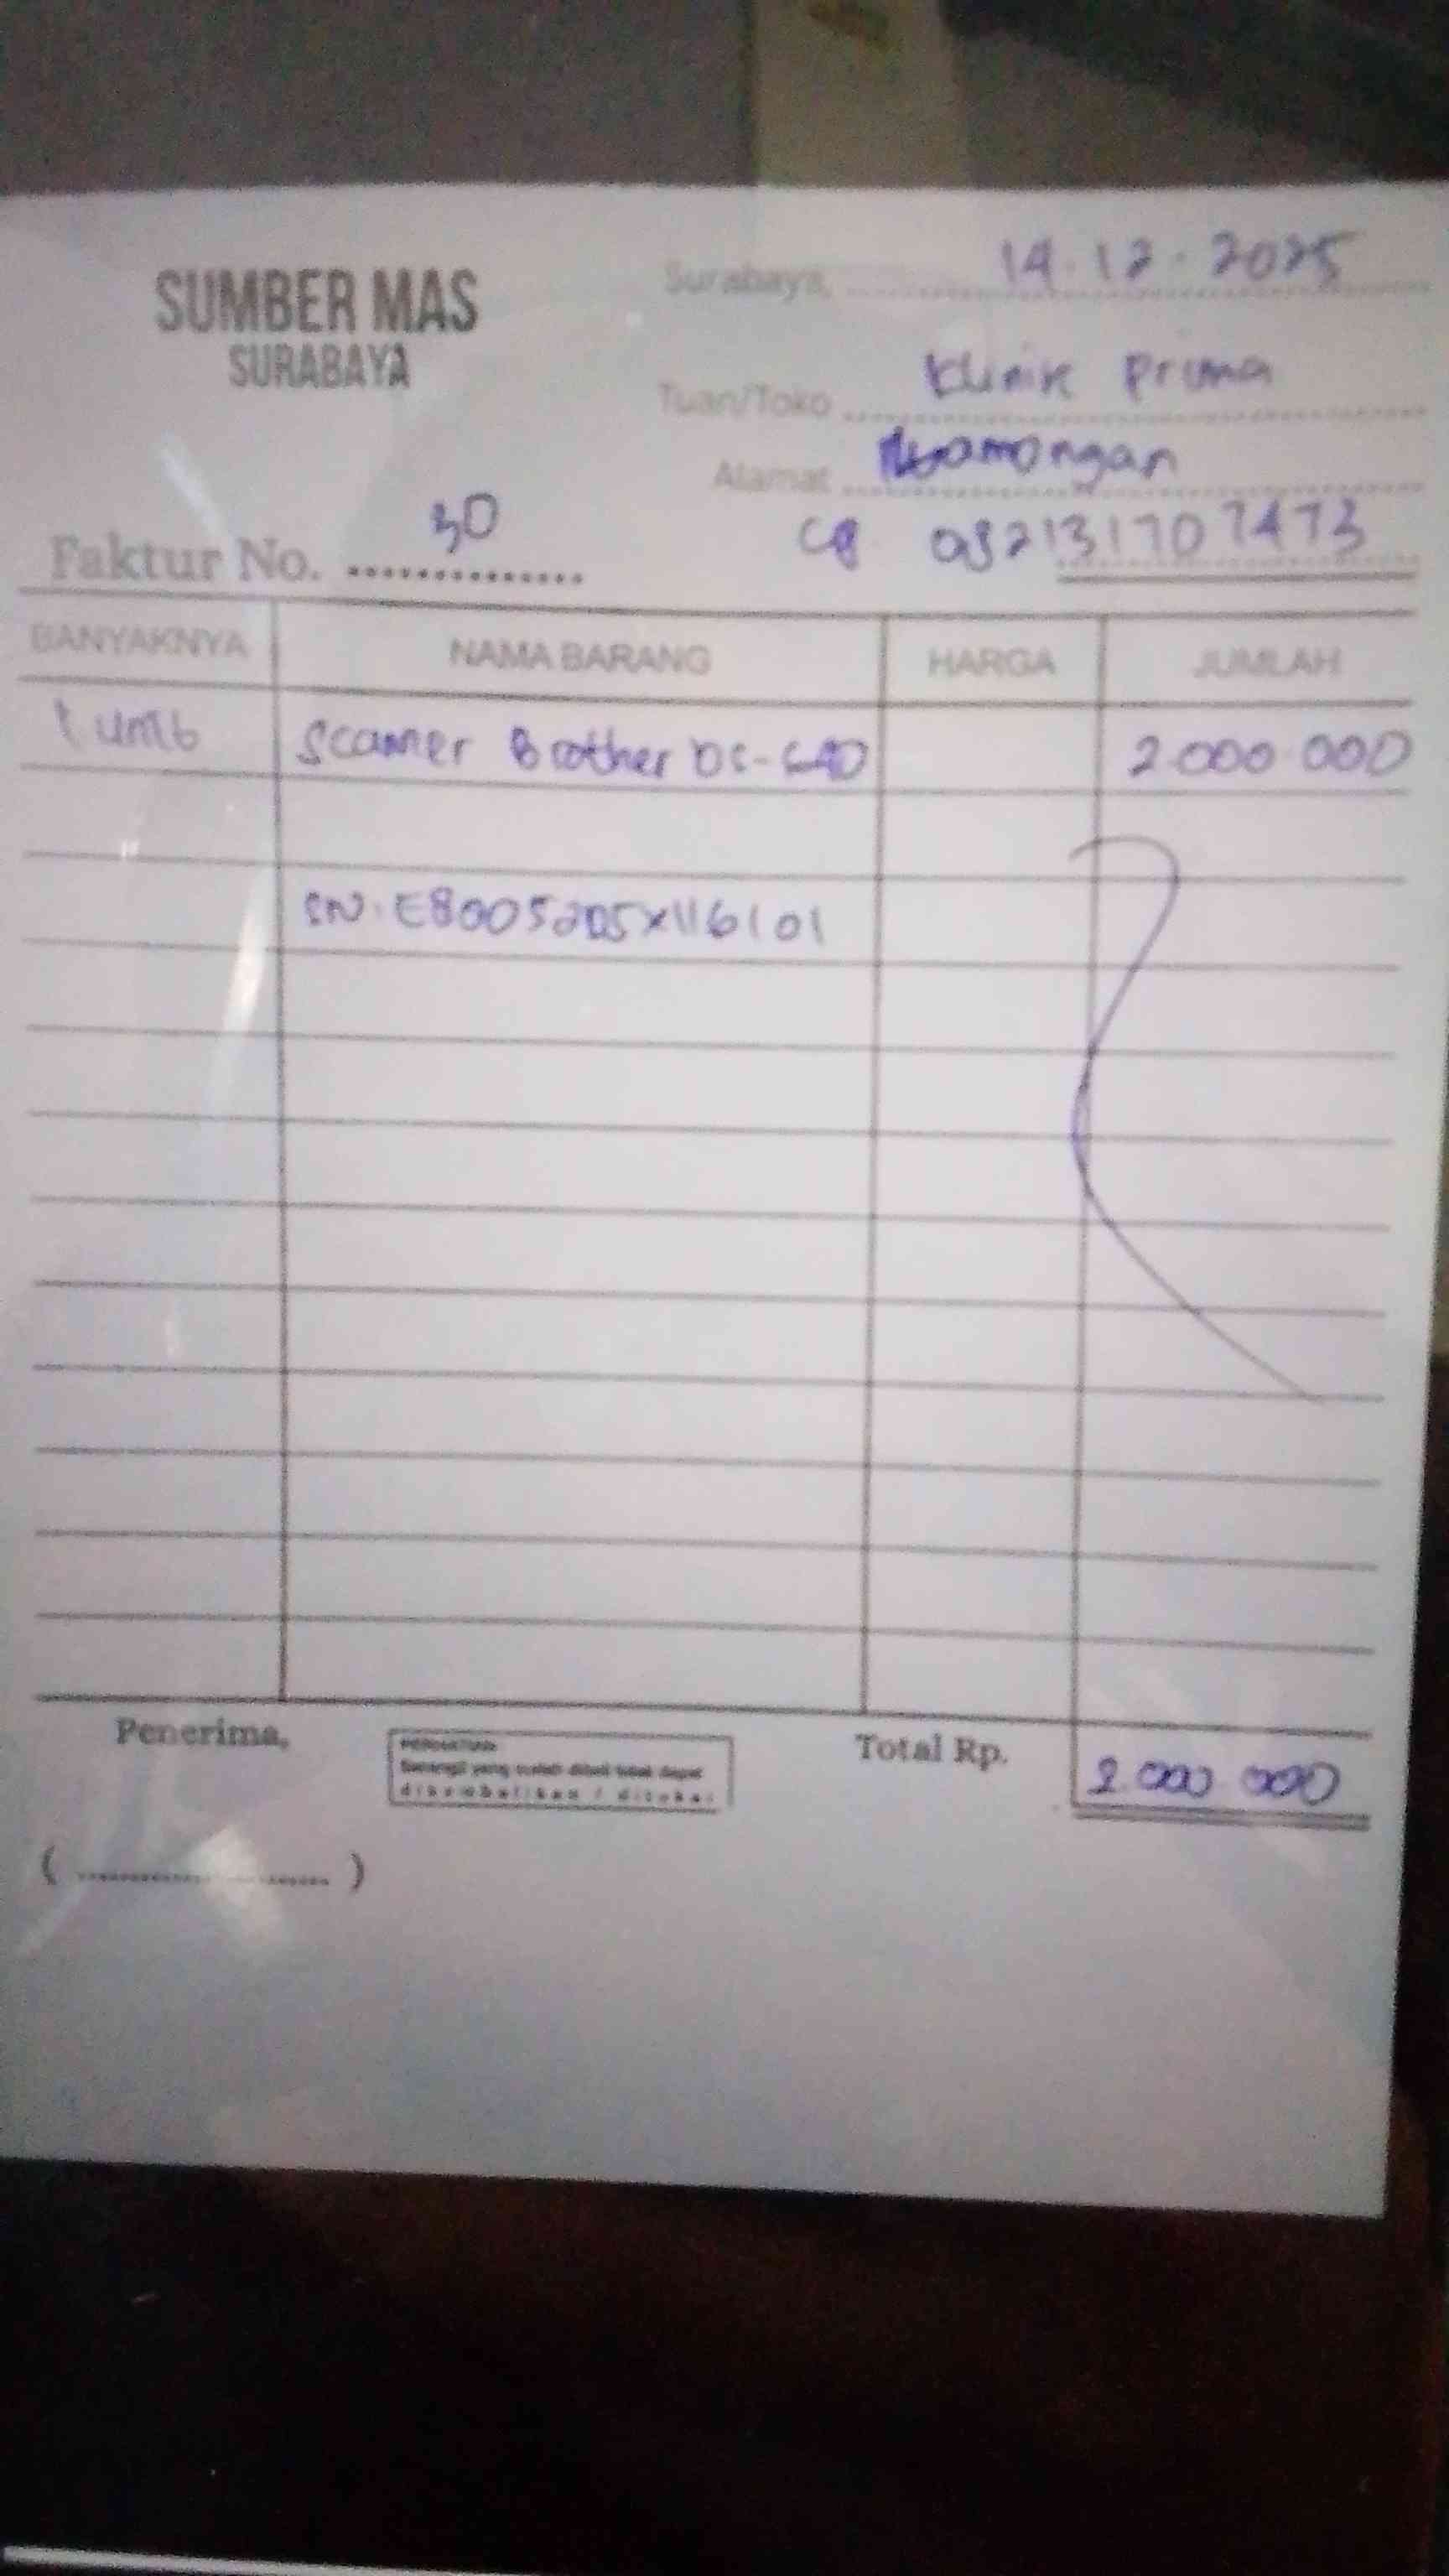 SUMBER MAS
SURABAYA
Surabaya, 14.12.2025
Tuan/Toko Klinik Prima
Alamat
Faktur No. 30
082131707473
BANYAKNYA NAMA BARANG HARGA JUMLAH
1 unit Scanner Brother DS-640 2.000.000
SN: E80052D5X116101
Penerima, Total Rp. 2.000.000
PERHATIAN
Barang2 yang sudah dibeli tidak dapat
dikembalikan / ditukar